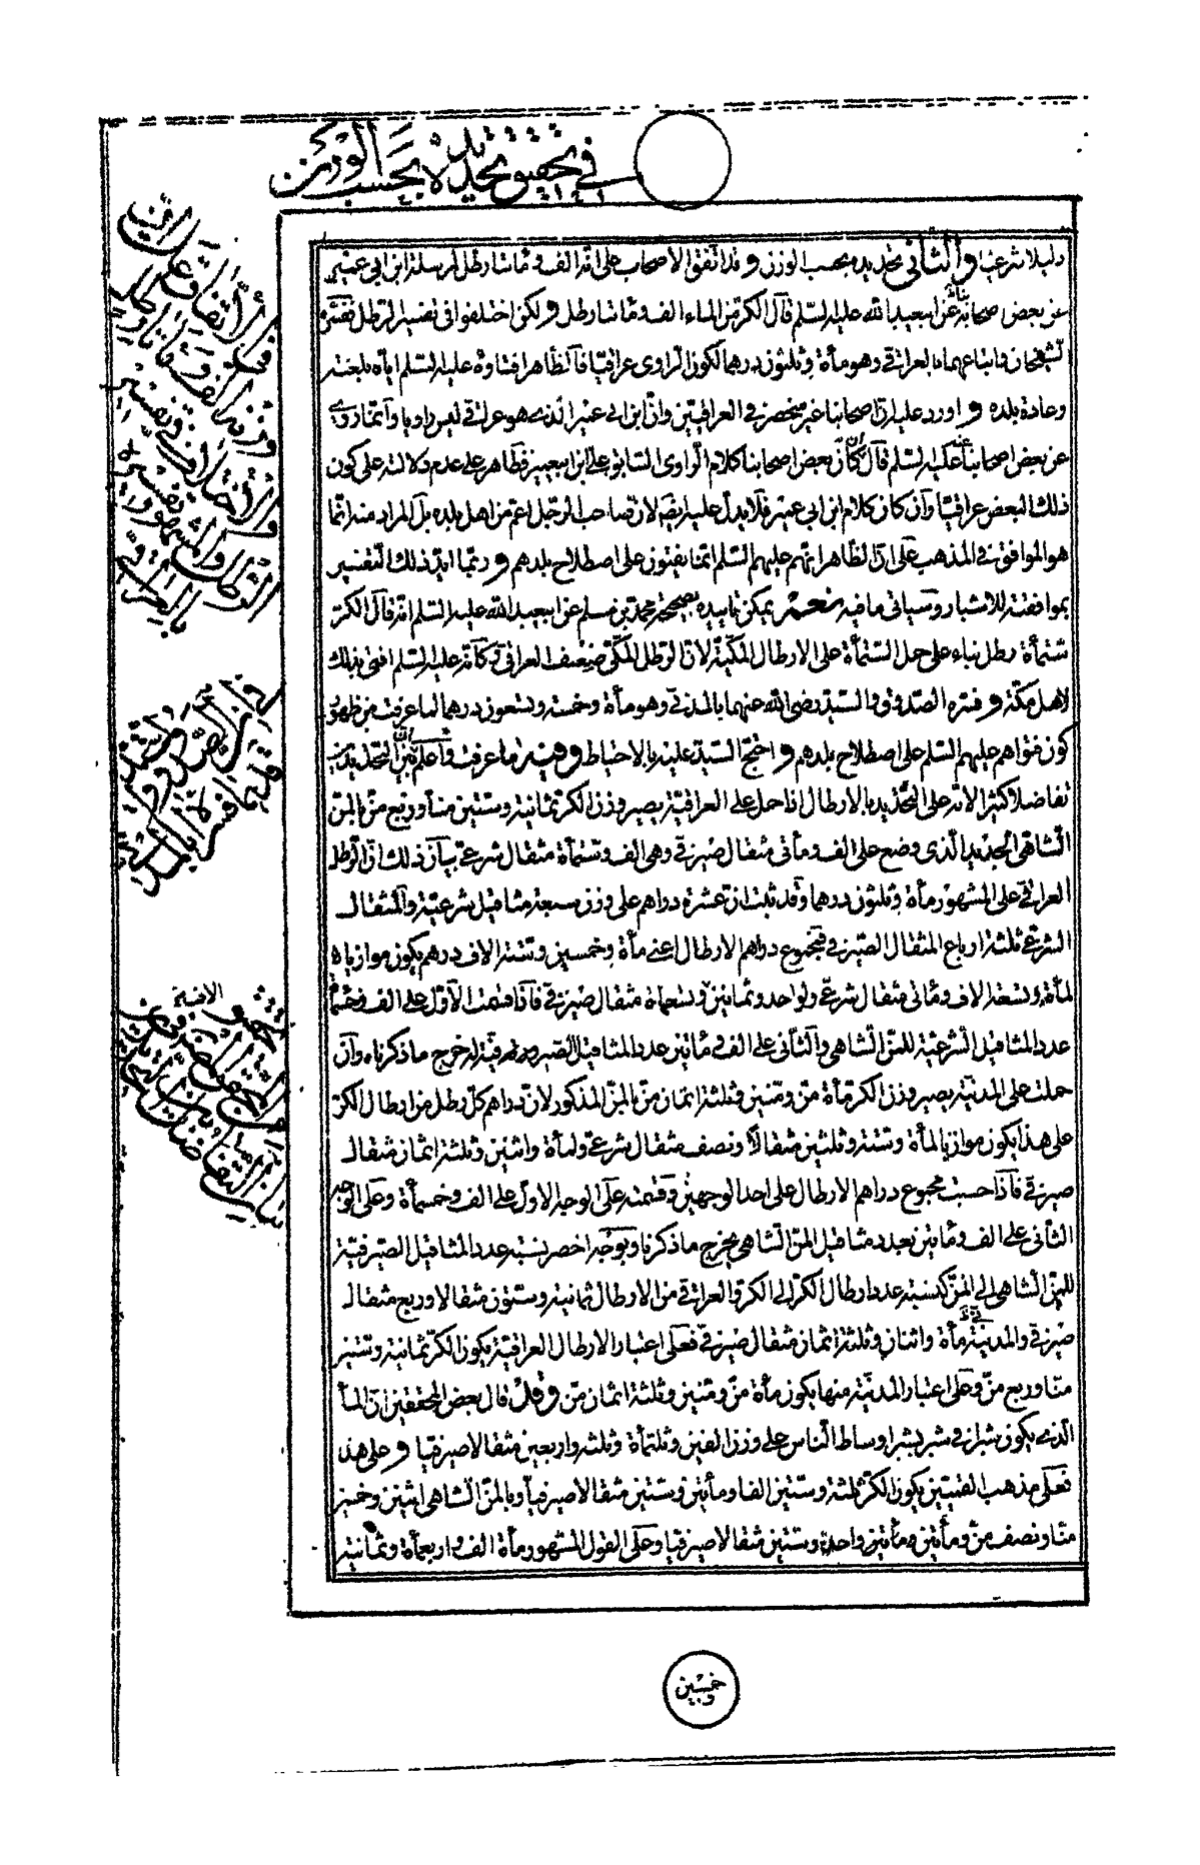 في تحقيق تحديده بحسب الوزن
دليلا شرعيا والثاني تحديده بحسب الوزن وقد اتفق الاصحاب على انه الف ومائتا رطل لرسلة ابن ابي عمير
عن بعض اصحابنا عن ابيعبد الله عليه السلم قال الكر من الماء الف ومائتا رطل ولكن اختلفوا في تفسير الرطل ففسره
الشيخان واتباعهما بالعراقي وهو مأة وثلثون درهما لكون الراوي عراقيا فالظاهر افتاؤه عليه السلم اياه بلغته
وعادة بلده واورد عليه ان اصحابنا غير منحصر في العراقيين وان ابن ابي عمير الذي هو عراقي ليس راويا وانما روى
عن بعض اصحابنا عنه عليه السلم قال كان بعض اصحابنا كلام الراوي السابق على ابن ابيعمير فظاهر على عدم دلالته على كون
ذلك البعض عراقيا وان كان كلام ابن ابي عمير فلا يدل عليه ايضا لان صاحب الرجل اعم من اهل بلده بل المراد منه انما
هو الموافق في المذهب على ان الظاهر انهم عليهم السلم انما يفتون على اصطلاح بلدهم وربما ايد ذلك التفسير
بموافقته للاشبار وسياتي ما فيه نعم يمكن تاييده بصحيحة محمد بن مسلم عن ابيعبد الله عليه السلم انه قال الكر
ستمأة رطل بناء على حمل الستمأة على الارطال المكية لان الرطل المكي ضعف العراقي وكانه عليه السلم افتى بذلك
لاهل مكة وفسره الصدوق والسيد رضي الله عنهما بالمدني وهو مأة وخمسة وتسعون درهما لما عرفت من ظهور
كون فتواهم عليهم السلم على اصطلاح بلدهم واحتج السيد عليه بالاحتياط وفيه ما عرفت واعلم ان بين التحديدين
تفاضلا كثيرا لانه على التحديد بالارطال اذا حمل على العراقية يصير وزن الكر ثمانية وستين منا وربع من بالمن
الشاهي الجديد الذي وضع على الف ومأتي مثقال صيرفي وهي الف وستمأة مثقال شرعي بيان ذلك ان الرطل
العراقي على المشهور مأة وثلثون درهما وقد ثبت ان عشرة دراهم على وزن سبعة مثاقيل شرعية والمثقال
الشرعي ثلثة ارباع المثقال الصيرفي فمجموع دراهم الارطال اعني مأة وخمسين وستة الاف درهم يكون موازيا
لمأة وتسعة الاف ومأتي مثقال شرعي ولواحد وثمانين وتسعمأة مثقال صيرفي فاذا قسمت الاول على الف وستمأة
عدد المثاقيل الشرعية للمن الشاهي والثاني على الف ومأتين عدد المثاقيل الصيرفية له خرج ما ذكرناه وان
حملت على المدنية يصير وزن الكر مأة من ومنين وثلثة اثمان من بالمن المذكور لان دراهم كل رطل من ارطال الكر
على هذا يكون موازيا لمأة وستة وثلثين مثقالا ونصف مثقال شرعي ولمأة واثنين وثلثة اثمان مثقال
صيرفي فاذا حسبت مجموع دراهم الارطال على احد الوجهين وقسمته على الوجه الاول على الف وخمسمأة وعلى الوجه
الثاني على الف ومأتين بعدد مثاقيل المن الشاهي يخرج ما ذكرنا وبوجه اخصر نسبة عدد المثاقيل الصيرفية
للمن الشاهي الى المن كنسبة عدد ارطال الكر الى الكر والعراقي من الارطال ثمانية وستون مثقالا وربع مثقال
صيرفي والمدنية مأة واثنان وثلثة اثمان مثقال صيرفي فعلى اعتبار الارطال العراقية يكون الكر ثمانية وستين
منا وربع من وعلى اعتبار المدنية منها يكون مأة من ومنين وثلثة اثمان من وقد قال بعض المحققين ان الماء
الذي يكون شبرا في شبر بشبر اوساط الناس على وزن الفين وثلثمأة وثلثة واربعين مثقالا صيرفيا وعلى هذا
فعلى مذهب القميين يكون الكر ثلثة وستين الفا ومأتين وستين مثقالا صيرفيا وبالمن الشاهي اثنين وخمسين
منا ونصف من ومأتين ومأتين واحدة وستين مثقالا صيرفيا وعلى القول المشهور مأة الف واربعمأة وثمانية
في ان الاتفاق على ان
وزنه الف ومائتا رطل
والاختلاف في تفسير
الرطل والمشهور تفسيره
بالعراقي